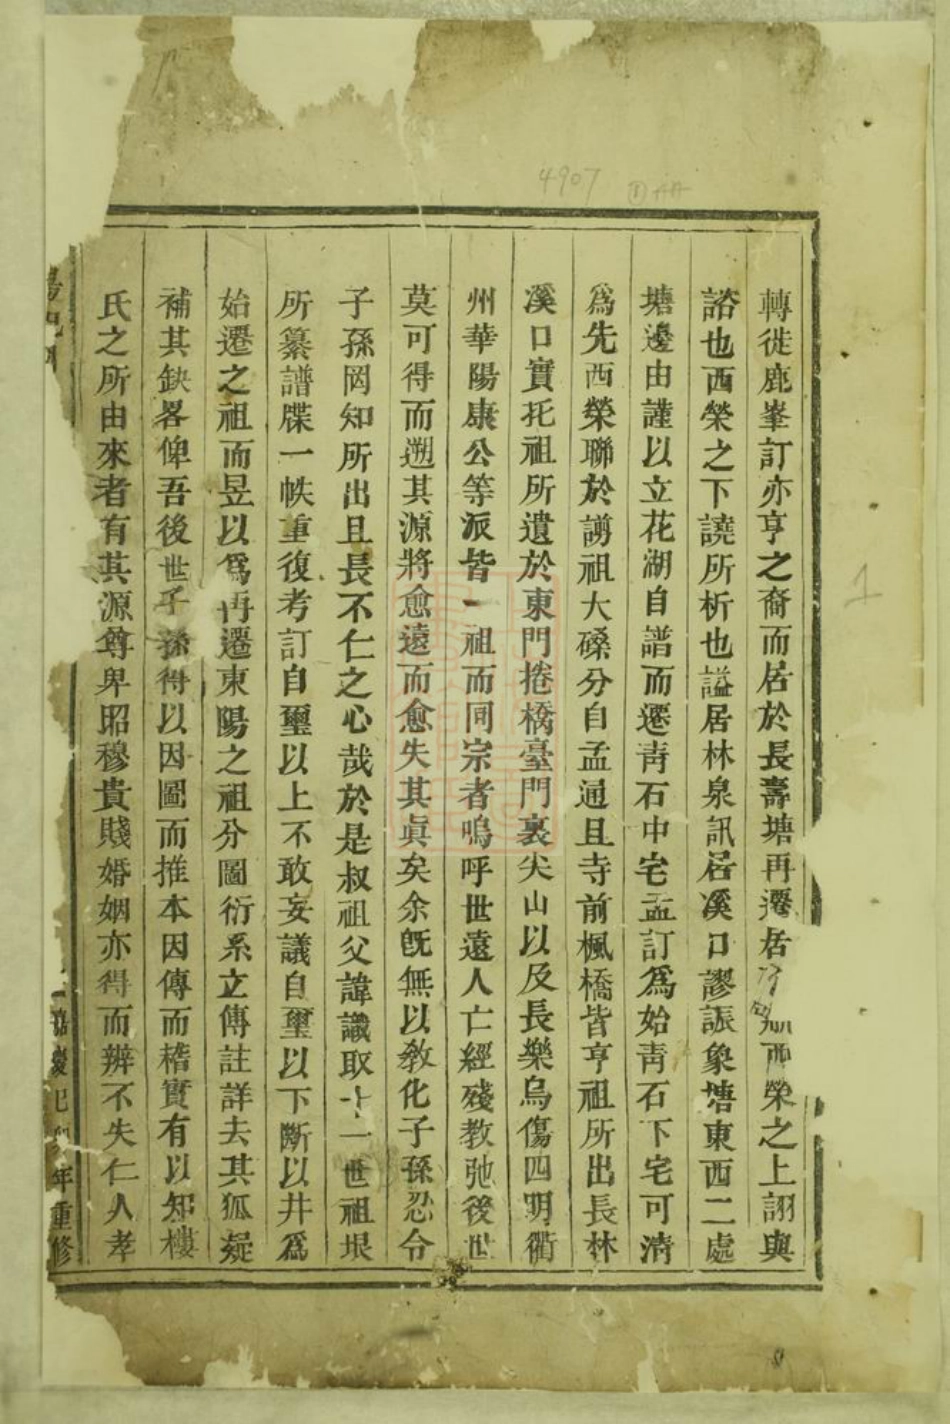 轉徙鹿峯訂亦亨之裔而居於長壽塘再遷居西榮之上詡與
諮也西榮之下譊所析也謚居林泉訊居溪口謬諏象塘東西二處
塘邊由謹以立花湖自譜而遷靑石中宅孟訂爲始靑石下宅可清
爲先西榮聯於謭祖大磉分自孟通且寺前楓橋皆亨祖所出長林
溪口實托祖所遺於東門捲橋臺門裏尖山以及長樂烏傷四明衢
州華陽康公等派皆一祖而同宗者嗚呼世遠人亡經殘教弛後世
莫可得而遡其源將愈遠而愈失其眞矣余旣無以敎化子孫忍令
子孫罔知所出且長不仁之心哉於是叔祖父諱議取十一世祖垠
所纂譜牒一帙重復考訂自璽以上不敢妄議自璽以下斷以井爲
始遷之祖而昱以爲再遷東陽之祖分圖衍系立傳註詳去其狐疑
補其缺畧俾吾後世子孫得以因圖而推本因傳而稽實有以知樓
氏之所由來者有其源尊卑昭穆貴賤婚姻亦得而辨不失仁人孝
嘉慶己卯年重修
4907
1